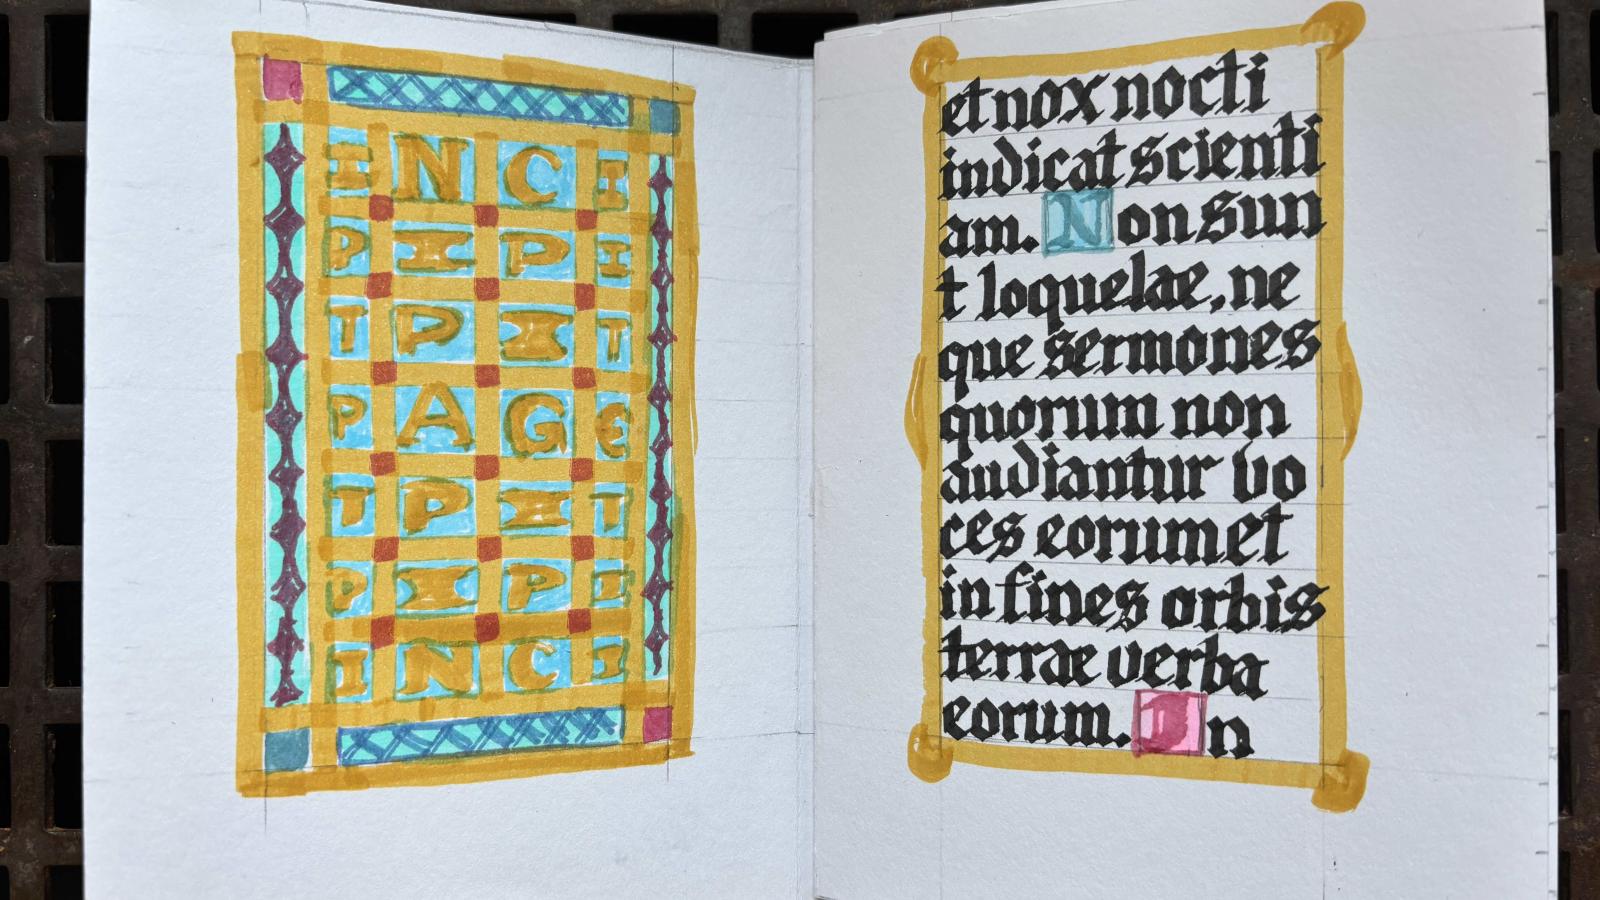 INCI
PIPI
TPIT
PAGE
TPIT
PIPI
INCI
et nox nocti
indicat scienti
am. Non sun
t loquelae, ne
que sermones
quorum non
audiantur vo
ces eorum et
in fines orbis
terrae verba
eorum. In